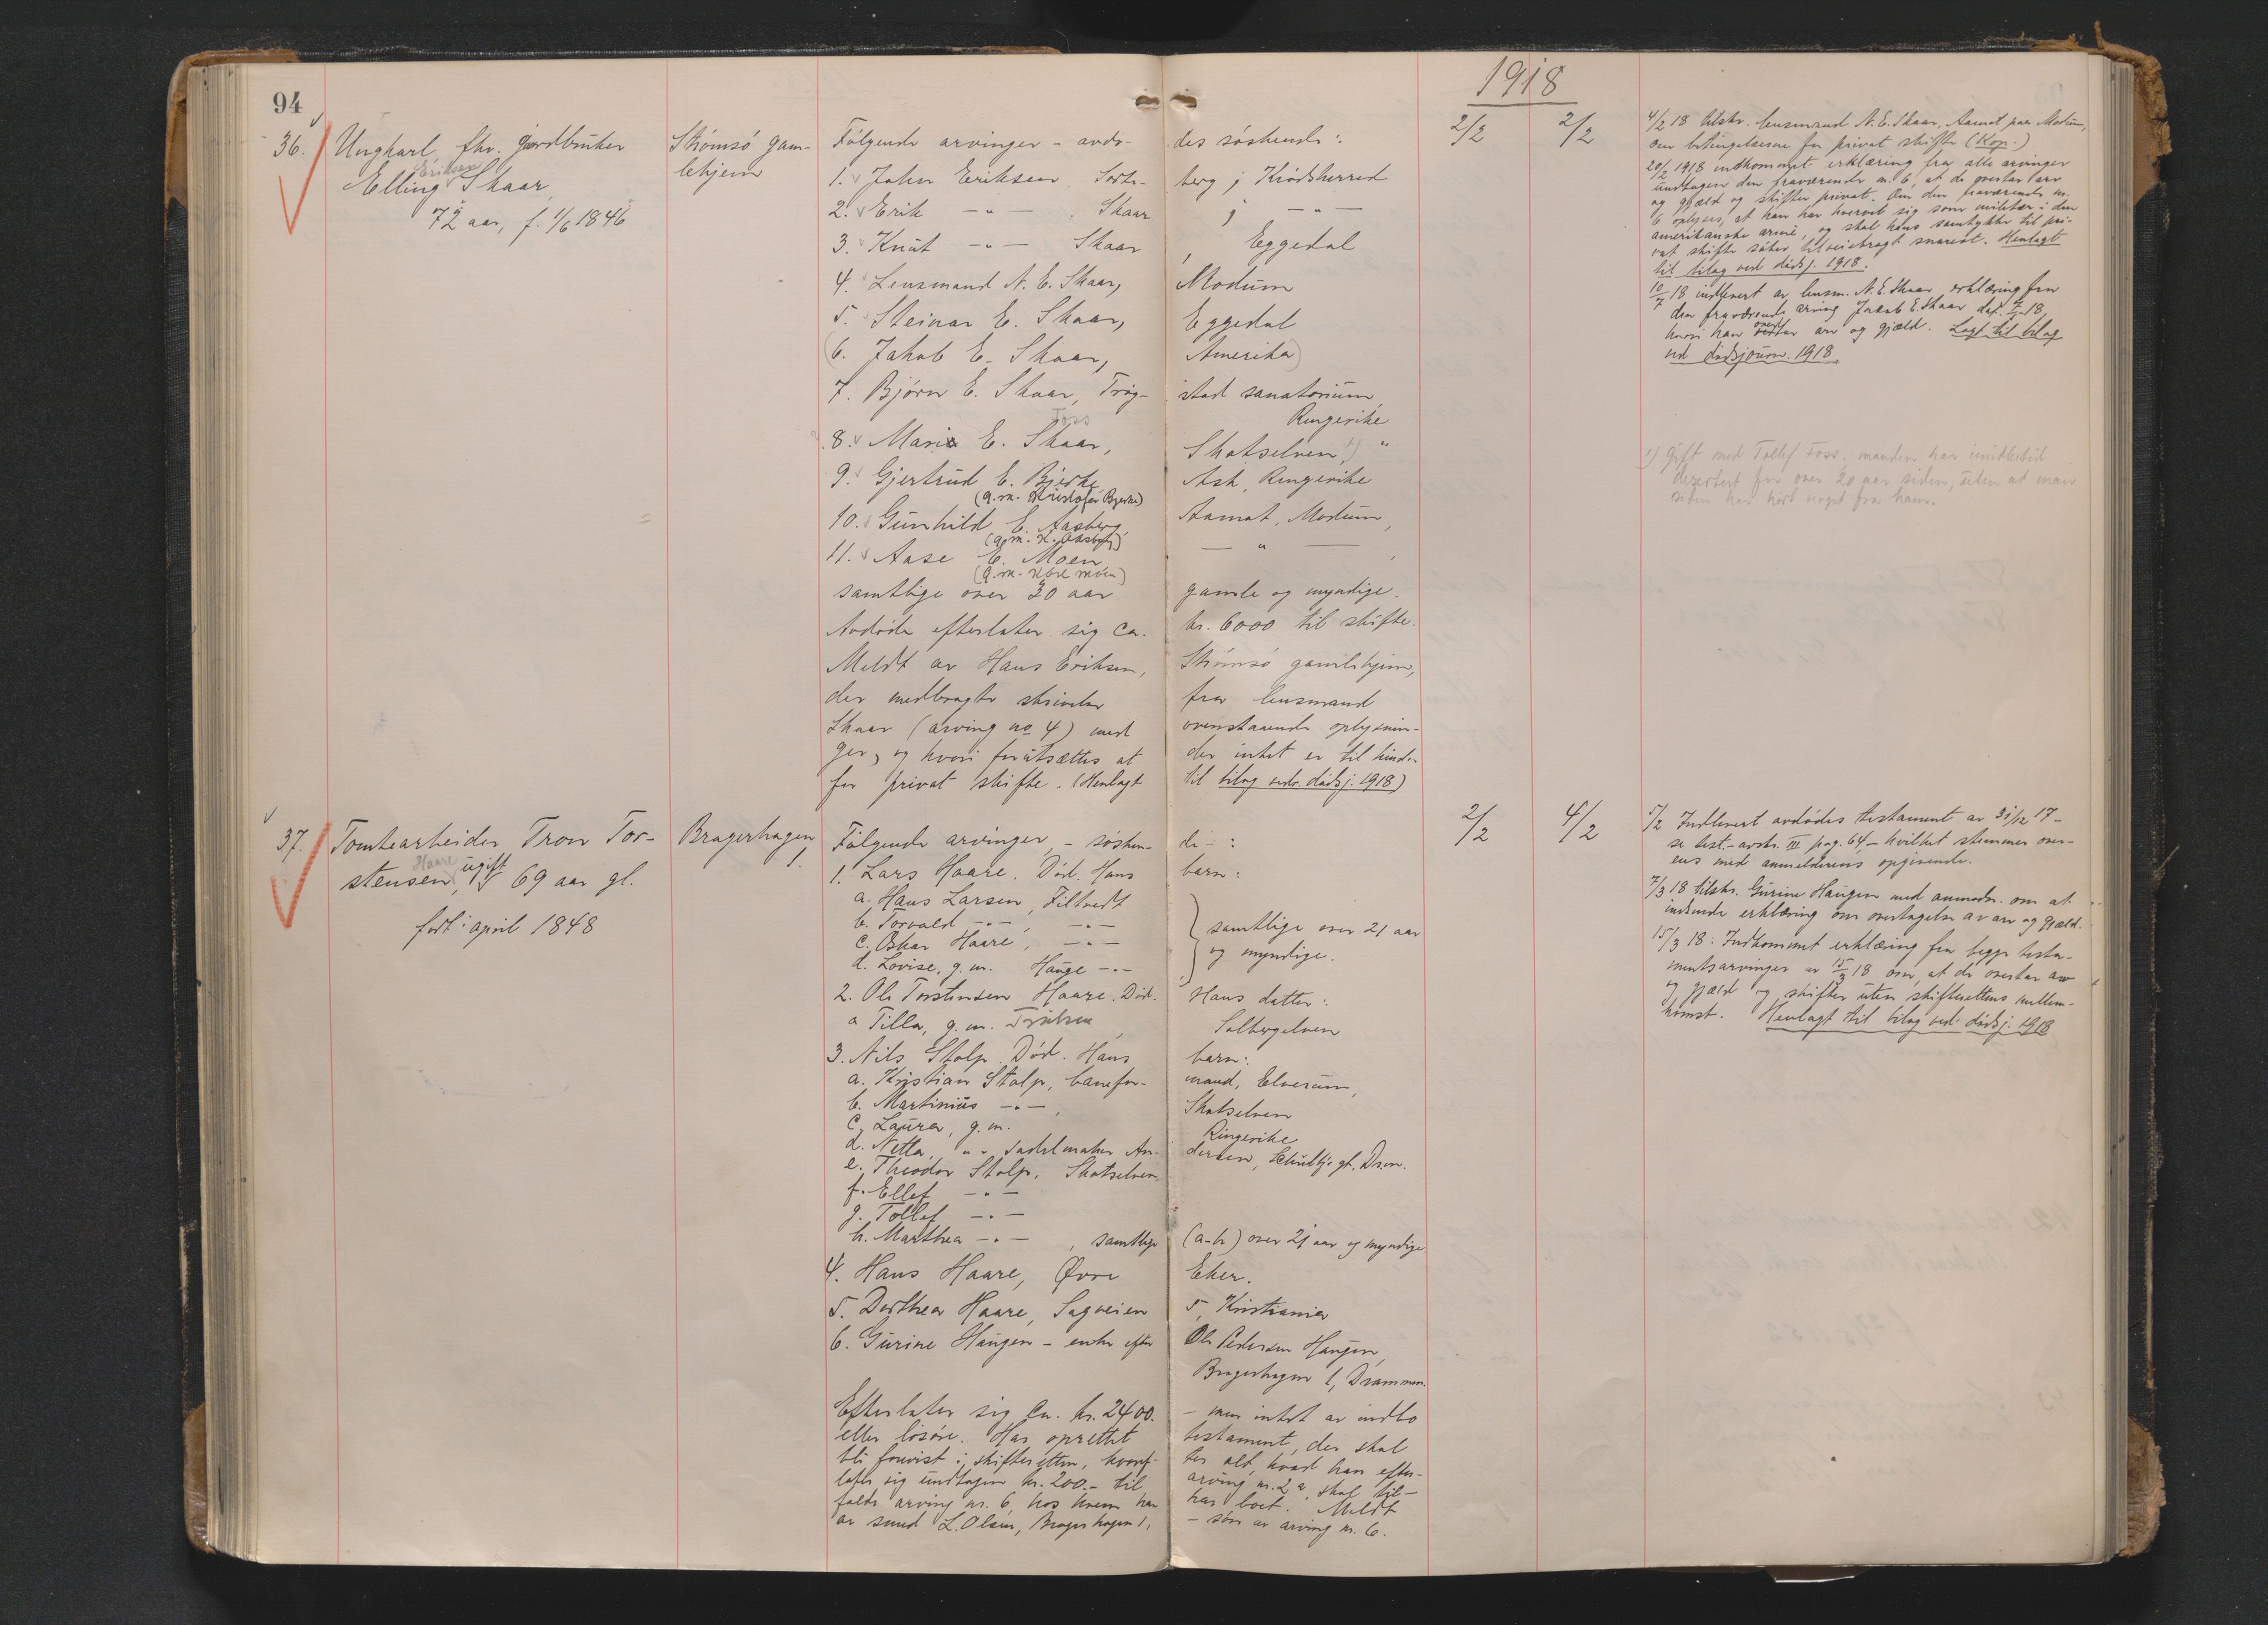 94
1918
36. Ungkarl, fhv. gårdbruker
Eriksen
Elling Skaar
72 aar, f. 1/6 1846
Strømsø gam-
lehjem
Følgende arvinger - avdø- des søskende:
1. John Eriksen Sorte- berg i Krødsherred
2. Erik -"- , Skaar i -"-
3. Knut -"- Skaar , Eggedal
4. Lensmand N. E. Skaar, Modum
5. Steinar E. Skaar, Eggedal
(6. Jakob E. Skaar, Amerika)
7. Bjørn E. Skaar, Tryg- stad sanatorium,
Ringerike
Foss
8. Marie E. Skaar, Skotselven 1) "
9. Gjertrud E. Bjerke Ask, Ringerike
(g.m. Kristofer Bjerke)
10. Gunhild E. Aasberg, Aamot, Modum,
(g.m. K. Aasberg)
11. Aase E. Moen -"- ,
(g.m. Kåre Moen)
samtlige over 30 aar gamle og myndige.
Avdøde efterlater sig ca. kr. 6000 til skifte.
Meldt av Hans Eriksen, Strømsø gamlehjem,
der medbragte skrivelse fra lensmand
Skaar (arving no 4) med ovenstaaende oplysnin-
ger, og hvori forutsættes at der intet er til hinder
for privat skifte. (Henlagt til bilag vedr. dødsj. 1918)
2/2
2/2
4/2 18 tilskr. lensmand N. E. Skaar, Aamot paa Modum,
om betingelserne for privat skifte (Kop.)
20/2 1918 indkommet erklæring fra alle arvinger
undtagen den fraværende nr. 6, at de overtar arv
og gjæld og skifter privat. Om den fraværende nr.
6 oplyses, at han har hvervet sig som militær i den
amerikanske armé, og skal hans samtykke til pri-
vat skifte søkes tilveiebragt snarest. Henlagt
til bilag ved dødsj. 1918.
10/7 18 indlevert av lensm. N. E. Skaar erklæring fra
den fraværende arving Jakob E. Skaar dat. 7/7 18,
hvori han overtar arv og gjæld. Lagt til bilag
ved dødsjourn. 1918
1) Gift med Tollef Foss; manden har imidlertid
desertert for over 20 aar siden, uten at man
siden har hørt noget fra ham.
37. Tomtearbeider Tron Tor-
Haare
stensen, ugift 69 aar gl.
født: april 1848
Bragerhagen
1.
Følgende arvinger - søsken- de - :
1. Lars Haare. Død. Hans barn:
a. Hans Larsen, Filtvedt
b. Torvald -"- , -"-
c. Oskar Haare, -"-
d. Lovise, g.m. Hauge -"-
samtlige over 21 aar
og myndige.
2. Ole Torstensen Haare. Død. Hans datter:
a Tilla, g. m. Solbergelven
3. Nils Stolp. Død. Hans barn:
a. Kristian Stolp, banefor- mand, Elverum,
b. Martinius -"- , Skotselven
c. Laura, g. m. Ringerike
d. Netta, "" sadelmaker An- dersen, gt. Drm.
e. Theodor Stolp, Skotselven
f. Ellef -"-
g. Tollef -"-
h. Marthea -"- , samtlige (a-h) over 21 aar og myndige
4. Hans Haare, Øvre Eker.
5. Dorthea Haare, Sagveien 5, Kristiania
6. Gurine Haugen - enke efter Ole Pedersen Haugen,
Bragerhagen 1, Drammen.
Efterlater sig ca. kr. 2400. - men intet av indbo
eller løsøre. Har oprettet testament, der skal
bli forevist i skifteretten, hvoref- ter alt, hvad han efter-
later sig undtagen kr. 200.- til arving nr. 2 a, skal til-
falde arving nr. 6, hos hvem han har boet. Meldt
av smed L. Olsen, Bragerhagen 1, - søn av arving nr. 6.
2/2
4/2
5/2 Indlevert avdødes testament av 31/12 17 -
se test.-avskr. III pag. 64 - hvilket stemmer over-
ens med anmelderens opgivende.
7/3 18 tilskr. Gurine Haugen med anmodn. om at
indsende erklæring om overtagelse av arv og gjæld.
15/3 18: Indkommet erklæring fra begge testa-
mentsarvinger av 15/3 18 om, at de overtar arv
og gjæld og skifter uten skifterettens mellem-
komst. Henlagt til bilag ved dødsj. 1918